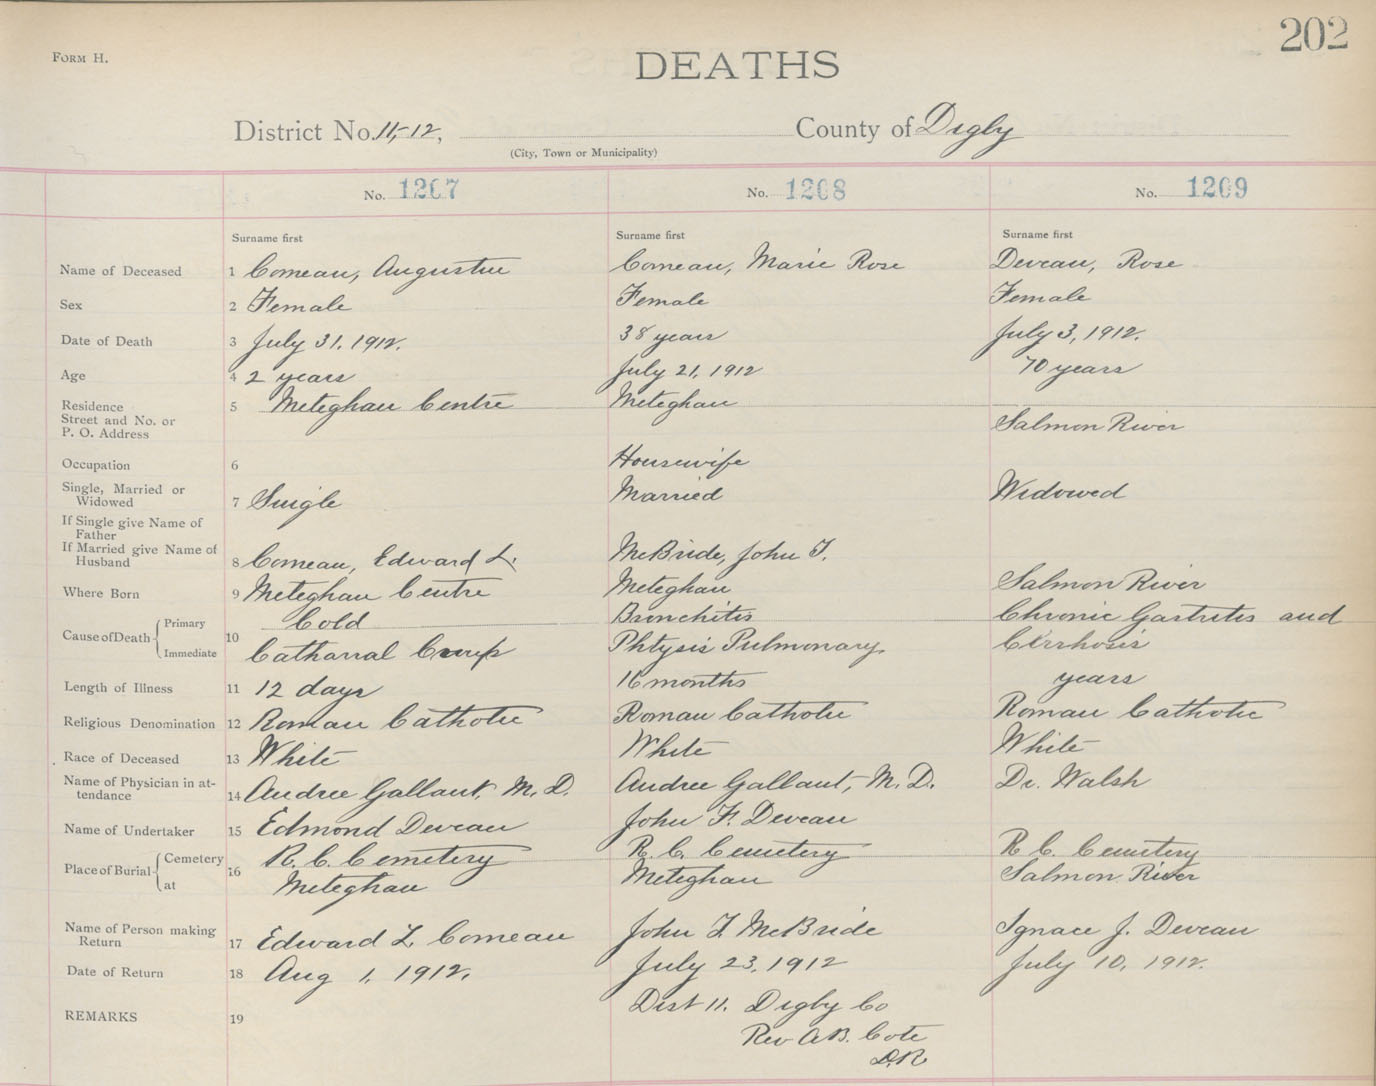 202
FORM H.
DEATHS
District No. 11,-12, County of Digby
(City, Town or Municipality)
No. 1207 No. 1208 No. 1209
Surname first Surname first Surname first
Name of Deceased 1 Comeau, Augustin Comeau, Marie Rose Deveau, Rose
Sex 2 Female Female Female
Date of Death 3 July 31. 1912. 38 years July 3, 1912.
Age 4 2 years July 21, 1912 70 years
Residence 5 Meteghan Centre Meteghan
Street and No. or
P. O. Address Salmon River
Occupation 6 Housewife
Single, Married or
Widowed 7 Single Married Widowed
If Single give Name of
Father
If Married give Name of
Husband 8 Comeau, Edward L. McBride, John F.
Where Born 9 Meteghan Centre Meteghan Salmon River
Cause of Death Primary 10 Cold Bronchitis Chronic Gastrites and
Immediate Catharral Croup Phtysis Pulmonary. Cirrhosis
Length of Illness 11 12 days 16 months years
Religious Denomination 12 Roman Catholic Roman Catholic Roman Catholic
Race of Deceased 13 White White White
Name of Physician in at-
tendance 14 Andree Gallant, M. D. Andree Gallant, M. D. Dr. Walsh
Name of Undertaker 15 Edmond Deveau John F. Deveau
Place of Burial Cemetery 16 R. C. Cemetery R. C. Cemetery R C. Cemetery
at Meteghan Meteghan Salmon River
Name of Person making
Return 17 Edward L Comeau John F. McBride Ignace J. Deveau
Date of Return 18 Aug 1, 1912. July 23, 1912 July 10, 1912.
REMARKS 19 Dist 11. Digby Co
Rev A.B. Cote
D.R